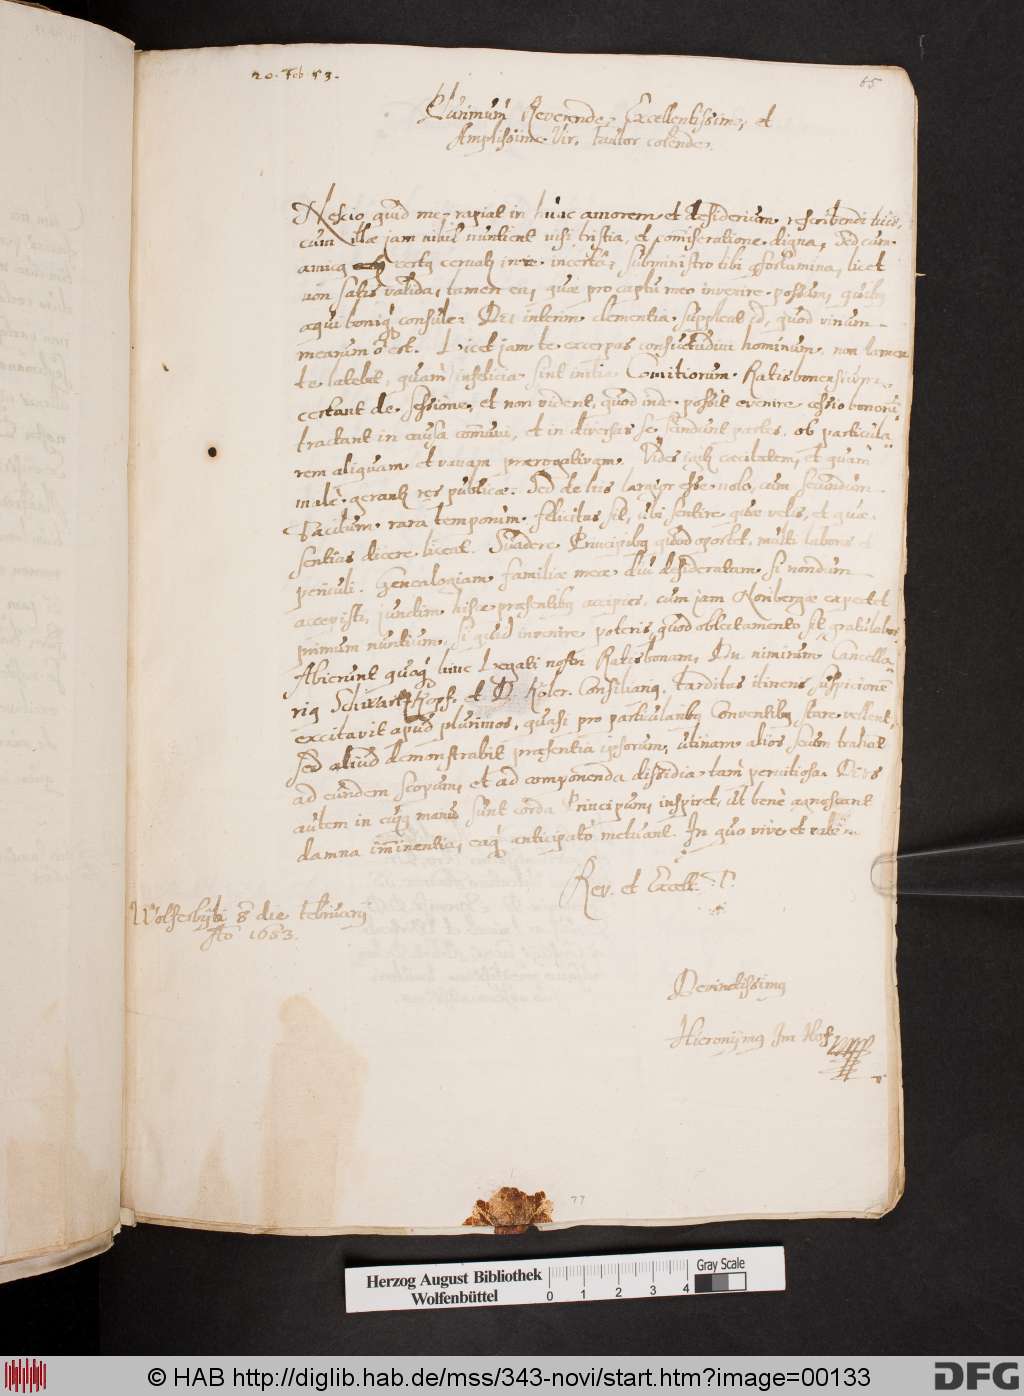 20. Feb 53.
65
Plurimum Reverende, Excellentissime, et
Amplissime Vir, Fautor colende.
Nescio quid me rapiat in hunc amorem et desiderium rescribendi tuis,
cum illae jam nihil nuntient nisi tristia, et commiseratione digna, Sed cum
amicq certq cernatq in re incerta, subministro tibi licet
non satis valida, tamen ea, quae pro captu meo invenire possum, quibq
aequi boniq consule, Dei interim clementia suppleat id, quod virium
mearum non est. Licet jam te excerpas consuetudini hominum, non tamen
te latebit, quam infelicia sint initia Comitiorum Ratisbonensium,
certant de sessione, et non vident, quod inde possit evenire cessio bonorum,
tractant in causa communi, et in diversas se scindunt partes, ob particula-
rem aliquam et vanam praerogativam. Vides caecitatem, et quam
male gerantq res publicae. Sed de his largior esse nolo, cum secundum
Tacitum rara temporum felicitas sit, ubi sentire quae velis, et quae
sentias dicere liceat. Suadere Principibq quod oportet, multi laboris et
periculi. Genealogiam familiae meae diu desideratam si nondum
accepisti, junctim hisce praesentibq accipies, cum jam Noribergae expectet
primum nuntium, si quid invenire poteris, quod oblectamento sit, gratulabor.
Abierunt quoq hinc Legati nostri Ratisbonam, Dn. nimirum Cancella-
riq Schwartzkopf. et D. Köler. Consiliariq. Tarditas itineris suspicionem
excitavit apud plurimos, quasi pro particularibq Conventibq stare vellent,
sed aliud demonstrabit praesentia ipsorum, utinam alios secum trahat
ad eundem scopum, et ad componenda dissidia tam pernitiosa. Deus
autem in cujq manu sunt corda Principum, inspiret, ut bene agnoscant
damna imminentia, eaq anticipato metuant. In quo vive et vale
Rev. et Excell. T.
Wolferbyti 8 die februarij
Ao 1653.
Devinctissimq
Hieronijmq Im Hof
77
Herzog August Bibliothek
Wolfenbüttel
0 1 2 3 4
Gray Scale
© HAB http://diglib.hab.de/mss/343-novi/start.htm?image=00133
DFG